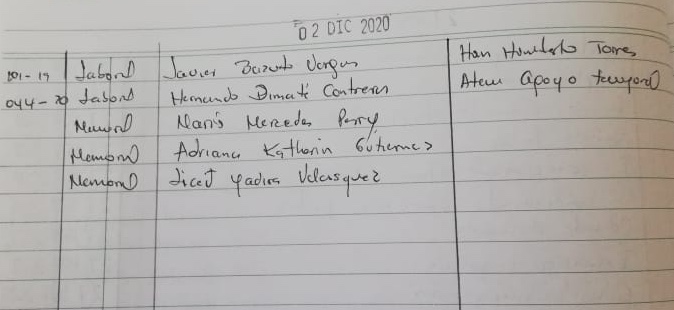 02 DIC 2020
001-19 Laboral Javier Vargas Han Humberto Torres
044-20 Laboral Hernando Dimaté Contreras Atem Apoyo temporal
Memorial Maria Mercedes Perry
Memorial Adriana Katherin Gutierrez
Memorial Licet Yadira Velasquez